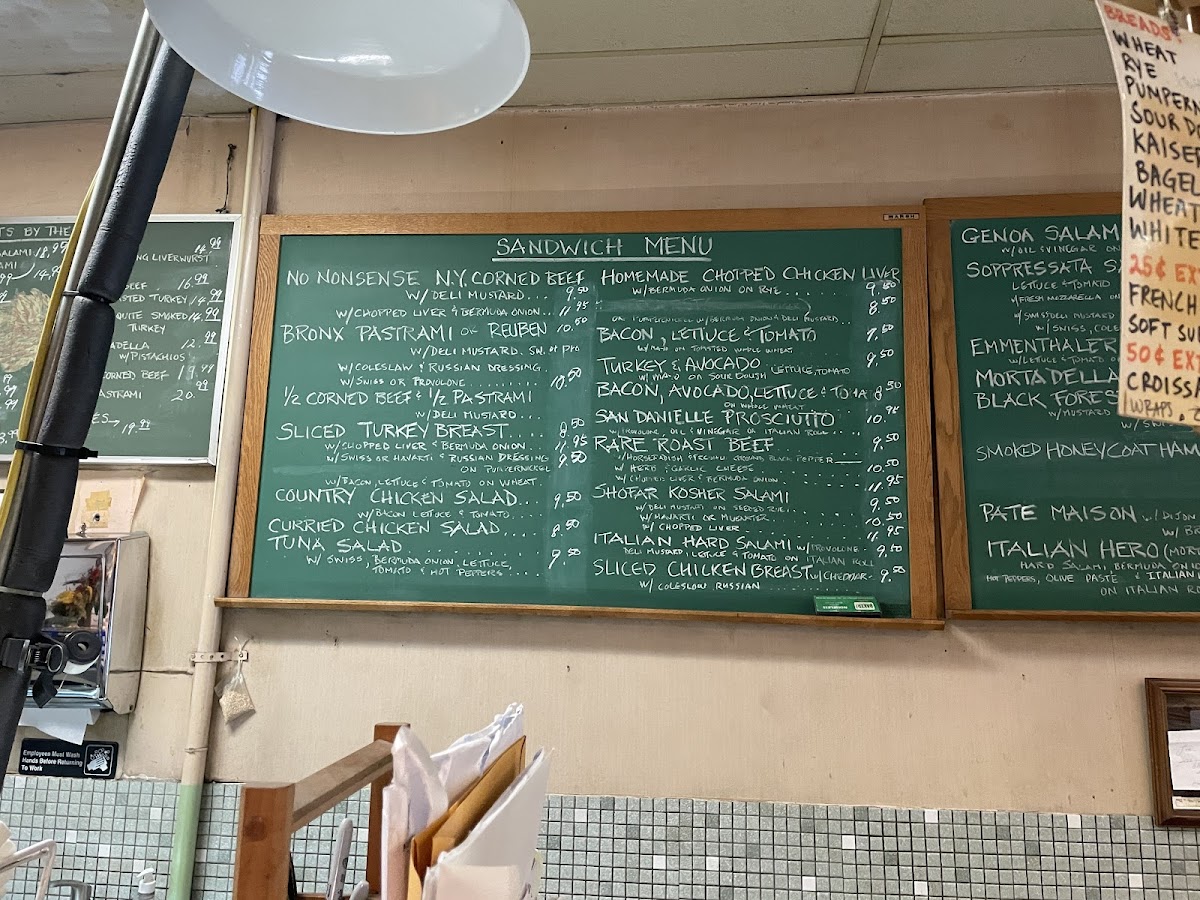 TS BY THE
SALAMI 18.95
14.99
NG LIVERWURST
14.99
16.99
STED TURKEY 14.99
QUITE SMOKED 14.99
TURKEY
DELLA 12.99
W/PISTACHIOS
CORNED BEEF 19.99
ASTRAMI 20.99
19.99
SANDWICH MENU
NO NONSENSE N.Y. CORNED BEEF
W/ DELI MUSTARD... 9.50
W/CHOPPED LIVER & BERMUDA ONION.. 11.95
BRONX PASTRAMI OR REUBEN 10.50
W/DELI MUSTARD. SW. OR PRO
W/COLESLAW & RUSSIAN DRESSING.
W/SWISS OR PROVOLONE.......... 10.50
1/2 CORNED BEEF & 1/2 PASTRAMI
W/DELI MUSTARD....
SLICED TURKEY BREAST.... 8.50
W/CHOPPED LIVER & BERMUDA ONION.... 11.95
W/SWISS OR HAVARTI & RUSSIAN DRESSING 9.50
ON PUMPERNICKEL
W/BACON, LETTUCE & TOMATO ON WHEAT.
COUNTRY CHICKEN SALAD... 9.50
W/BACON LETTUCE & TOMATO....
CURRIED CHICKEN SALAD... 8.50
TUNA SALAD
W/ SWISS, BERMUDA ONION, LETTUCE, 9.50
TOMATO & HOT PEPPERS....
HOMEMADE CHOPPED CHICKEN LIVER
W/BERMUDA ONION ON RYE... 9.50
8.50
ON PUMPERNICKEL W/BERMUDA ONION & DELI MUSTARD....
BACON, LETTUCE & TOMATO 7.50
W/MAYO ON TOASTED WHOLE WHEAT
TURKEY & AVOCADO 9.50
W/MAYO ON SOUR DOUGH LETTUCE, TOMATO
BACON, AVOCADO, LETTUCE & TOMA 8.50
ON WHOLE WHEAT
SAN DANIELLE PROSCIUTTO 10.95
W/PROVOLONE, OIL & VINEGAR ON ITALIAN ROLL...
RARE ROAST BEEF 9.50
W/ HERB & GARLIC CHEESE...... 10.50
W/ CHOPPED LIVER & BERMUDA ONION.... 11.95
SHOFAR KOSHER SALAMI
W/ DELI MUSTARD ON SEEDED RYE... 9.50
W/ HAVARTI OR MUENSTER 10.50
W/ CHOPPED LIVER 11.95
ITALIAN HARD SALAMI W/PROVOLONE 9.50
DELI MUSTARD, LETTUCE & TOMATO ON ITALIAN ROLL
SLICED CHICKEN BREAST W/CHEDDAR- 9.50
W/ COLESLAW RUSSIAN.......
GENOA SALAM
W/OIL & VINEGAR ON
SOPPRESSATA S
LETTUCE & TOMATO
W/FRESH MOZZARELLA ON
W/SWISS, COLE
EMMENTHALER
W/LETTUCE & TOMATO
MORTADELLA
BLACK FORES
W/MUSTARD
SMOKED HONEYCOAT HAM
PATE MAISON
ITALIAN HERO (MOR
HARD SALAMI, BERMUDA ONIO
HOT PEPPERS, OLIVE PASTE & ITALIAN
ON ITALIAN RO
BREADS
WHEAT
RYE
PUMPERN
SOUR DO
KAISER
BAGEL
WHEAT
WHITE
25¢ EX
FRENCH
SOFT SU
50¢ EX
CROISS
WRAPS
Employees Must Wash
Hands Before Returning
To Work